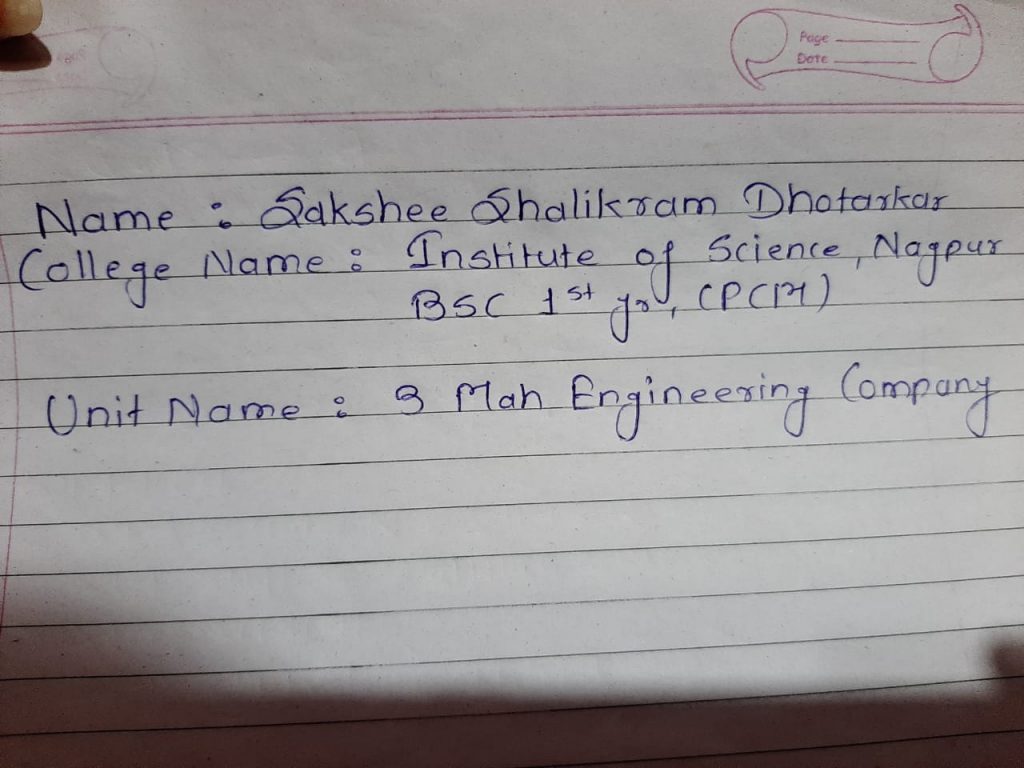 Page
Date
Name : Sakshee Shalikram Dhotarkar
College Name : Institute of Science, Nagpur
BSC 1st yr, (PCM)
Unit Name : 3 Mah Engineering Company